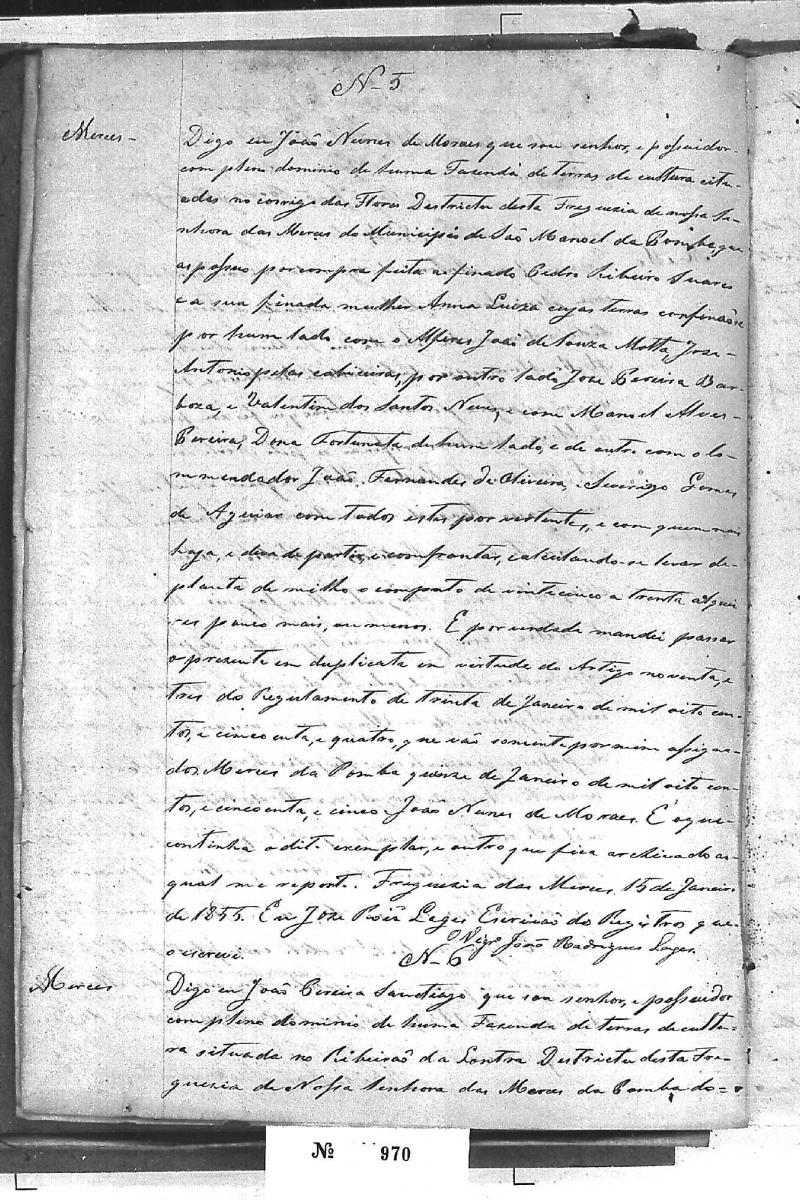 N. 5
Merces -
Digo eu João Nunes de Moraes que sou senhor, e possuidor
com pleno dominio de huma Fazenda de terras de cultura cita-
adas no corrigo das Flores Destricto desta Freguezia de nossa Se-
nhora das Merces do Municipio de São Manoel da Pomba, que
as possuo por compra feita a finado Pedro Ribeiro Suares
e a sua finada mulher Anna Luiza cujas terras confinãose
por hum lado com o Alferes João de Souza Motta, Joze
Antonio pelas cabiceiras, por outro lado Joze Pereira Bar-
boza, e Valentim dos Santos Neves, e com Manoel Alves
Pereira, Dona Fortunata de hum lado, e de outro com o Co-
mmendador João Fernandes de Oliveira, Gomes
de Aguiar com todos estas por vertentes, e com quem mais
haja, e deva de partir, e comfrontar, calculando-se levar de
planta de milho o computo de vinte cinco a trenta alquei
res pouco mais, ou menos. E por verdade mandei passar
o prezente em duplicata em virtude do Artigo noventa, e
tres do Regulamento de trinta de Janeiro de mil oito cen-
tos, e cincoenta, e quatro, que vão somente por mim assigna-
dos. Merces da Pomba quinze de Janeiro de mil oito cen-
tos, e cincoenta, e cinco. João Nunes de Moraes. E o que
continha o dito exemplar, e outro que fica archivado ao
qual me reporto. Freguezia das Merces 15 de Janeiro
de 1855. Eu Joze Roiz Lages Escrivão do Registros que
o escrevi.
O Vigro João Rodrigues Lages.
N. 6
Merces
Digo eu João Pereira Sanctiago que sou senhor, e possuidor
com pleno dominio de huma Fazenda de terras de cultu-
ra situada no Ribeirão da Lontra Destricto desta Fre-
guezia de Nossa Senhora das Merces da Pomba do=
Nº 970